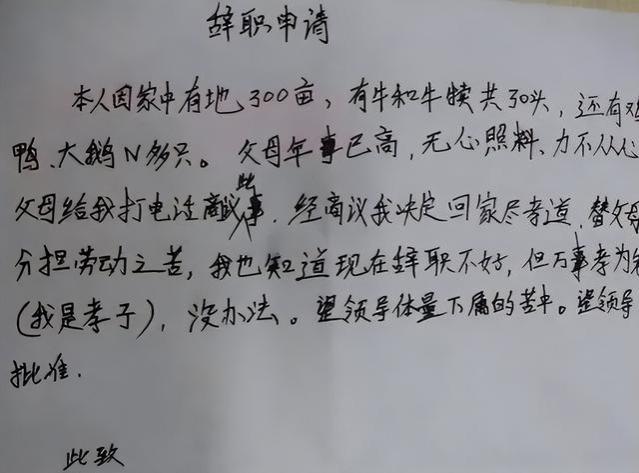 辞职申请
本人因家中有地300亩，有牛和牛犊共30头，还有鸡
鸭、大鹅N多只。父母年事已高，无心照料、力不从心
父母给我打电话商议此事．经商议我决定回家尽孝道，替父母
分担劳动之苦，我也知道现在辞职不好，但万事孝为
(我是孝子)，没办法。望领导体量下属的苦中。望领导
批准．
此致